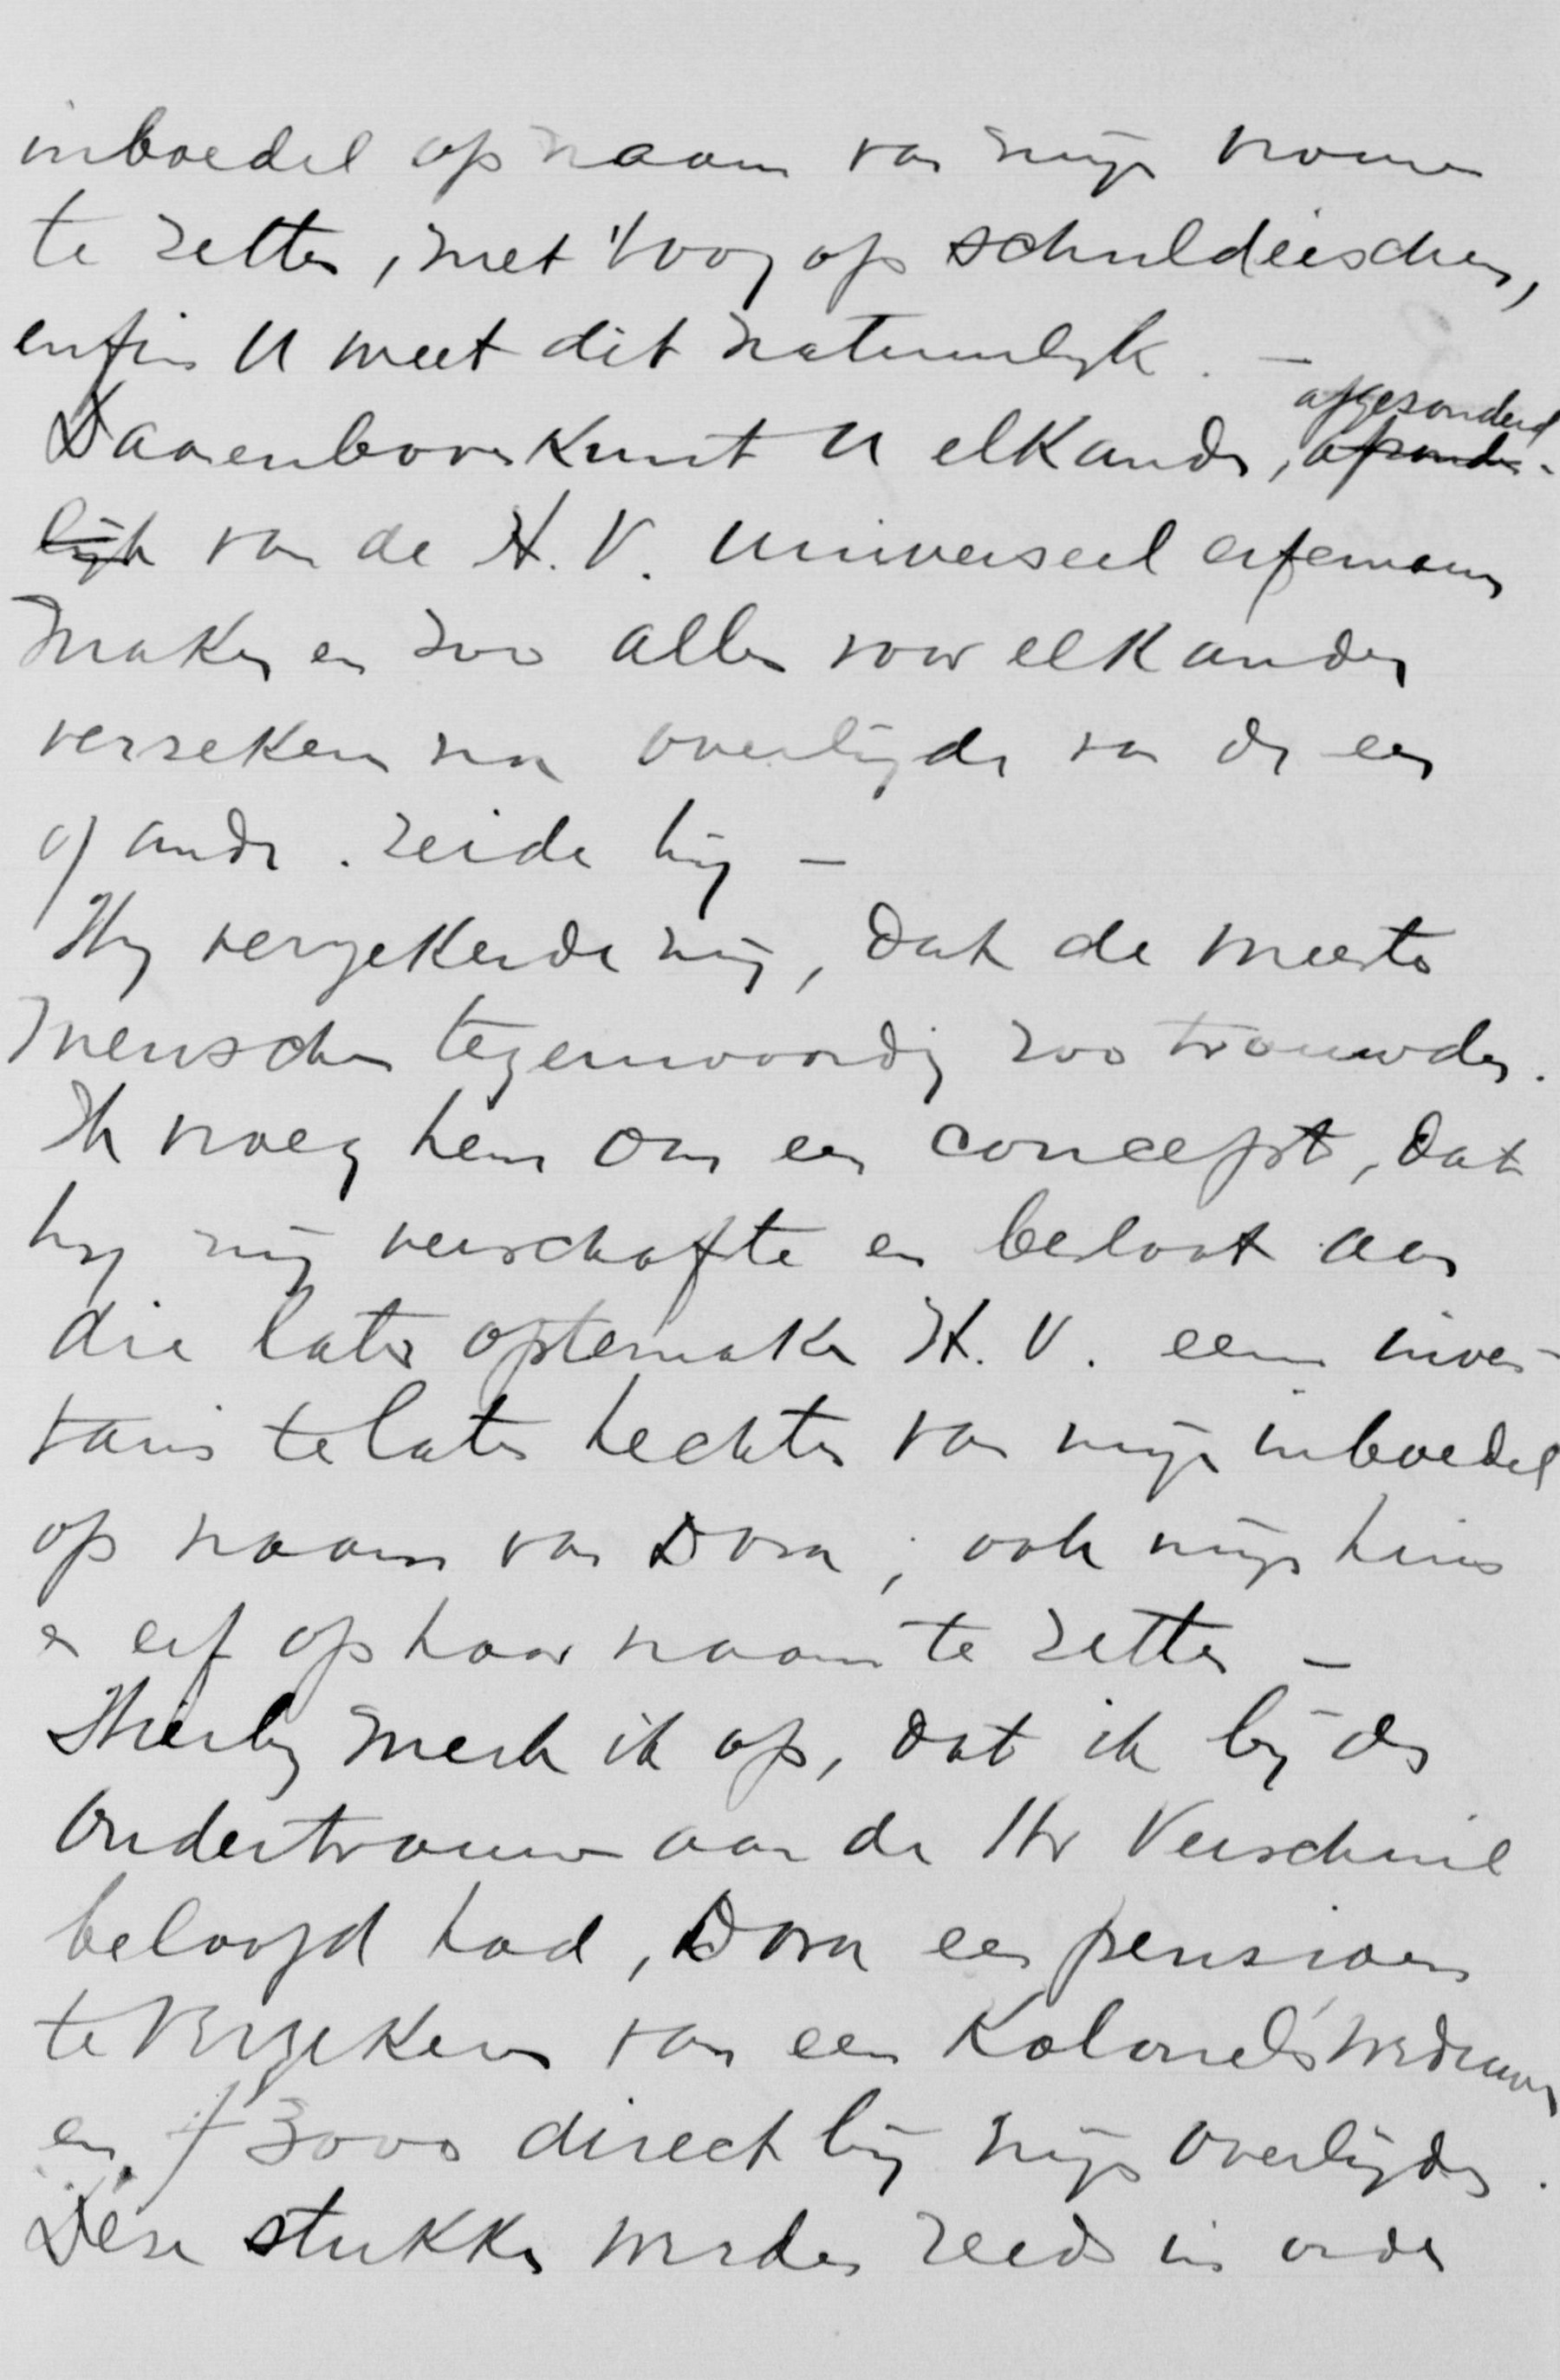 inboedel op naam van mijn vrouw
te zetten, met 't oog op schuldeischers,
enfin U weet dit natuurlijk. —
Daarenboven kunt U elkander, afgesonderd
van de H. V. universeel erfgenaam
maken en zoo alles voor elkander
verzekeren na overlijden van den een
of ander. zeide hij —
Hij verzekerde mij, dat de meeste
menschen tegenwoordig zoo trouwden.
Ik vroeg hem om een concept, dat
hij mij verschafte en besloot aan
die later optemaken H. V. een inven-
taris te laten hechten van mijn inboedel
op naam van Dora; ook mijn huis
en erf op haar naam te zetten —
Hierbij merk ik op, dat ik bij de
ondertrouw aan de Hr Verschuil
beloofd had, Dora een pensioen
te verzekeren van een Kolonels'weduwe
en f 3000 direct bij mijn overlijden.
Deze stukken werden reeds in orde